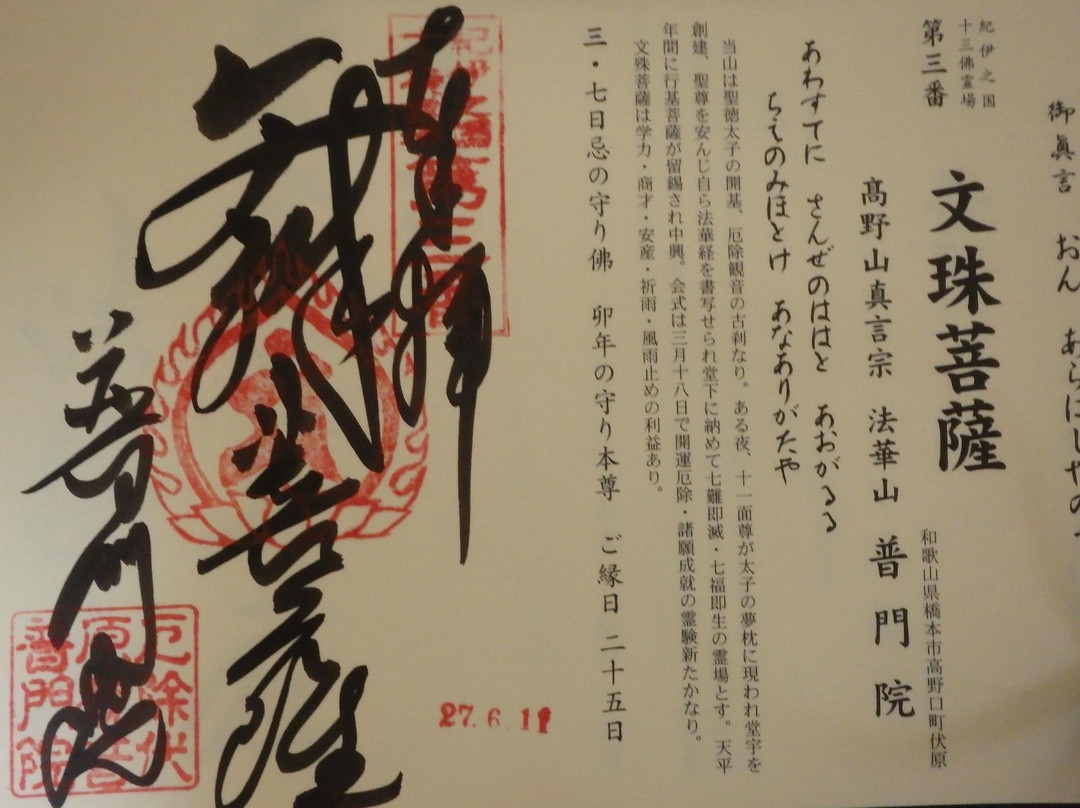 御眞言 おん あらはしやの
紀伊之国
十三佛霊場
第三番
文珠菩薩
和歌山県橋本市高野口町伏原
高野山真言宗 法華山 普門院
あわすてに さんぜのははと あおがるる
ちえのみほとけ あなありがたや
当山は聖徳太子の開基、厄除観音の古刹なり。ある夜、十一面尊が太子の夢枕に現われ堂宇を
創建、聖尊を安んじ自ら法華経を書写せられ堂下に納めて七難即滅・七福即生の霊場とす。天平
年間に行基菩薩が留錫され中興。会式は三月十八日で開運厄除・諸願成就の霊験新たかなり。
文殊菩薩は学力・商才・安産・祈雨・風雨止めの利益あり。
三・七日忌の守り佛 卯年の守り本尊 ご縁日 二十五日
27.6.11
奉拝
文殊菩薩
普門院
厄除伏
原
普門院